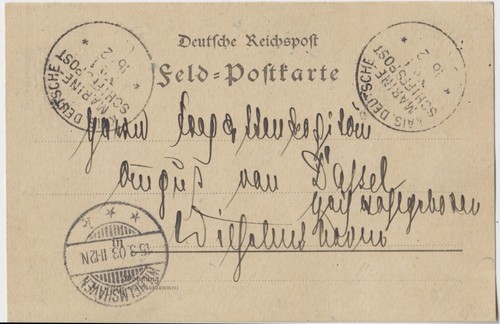 Deutsche Reichspost
Feld=Postkarte
KAIS. DEUTSCHE
MARINE
SCHIFFSPOST
16
2
KAIS. DEUTSCHE
MARINE
SCHIFFSPOST
16
2
Herrn
August von Dassel
Hochwohlgeboren
Wilhelmshaven
WILHELMSHAVEN
15.3.03 11-12N